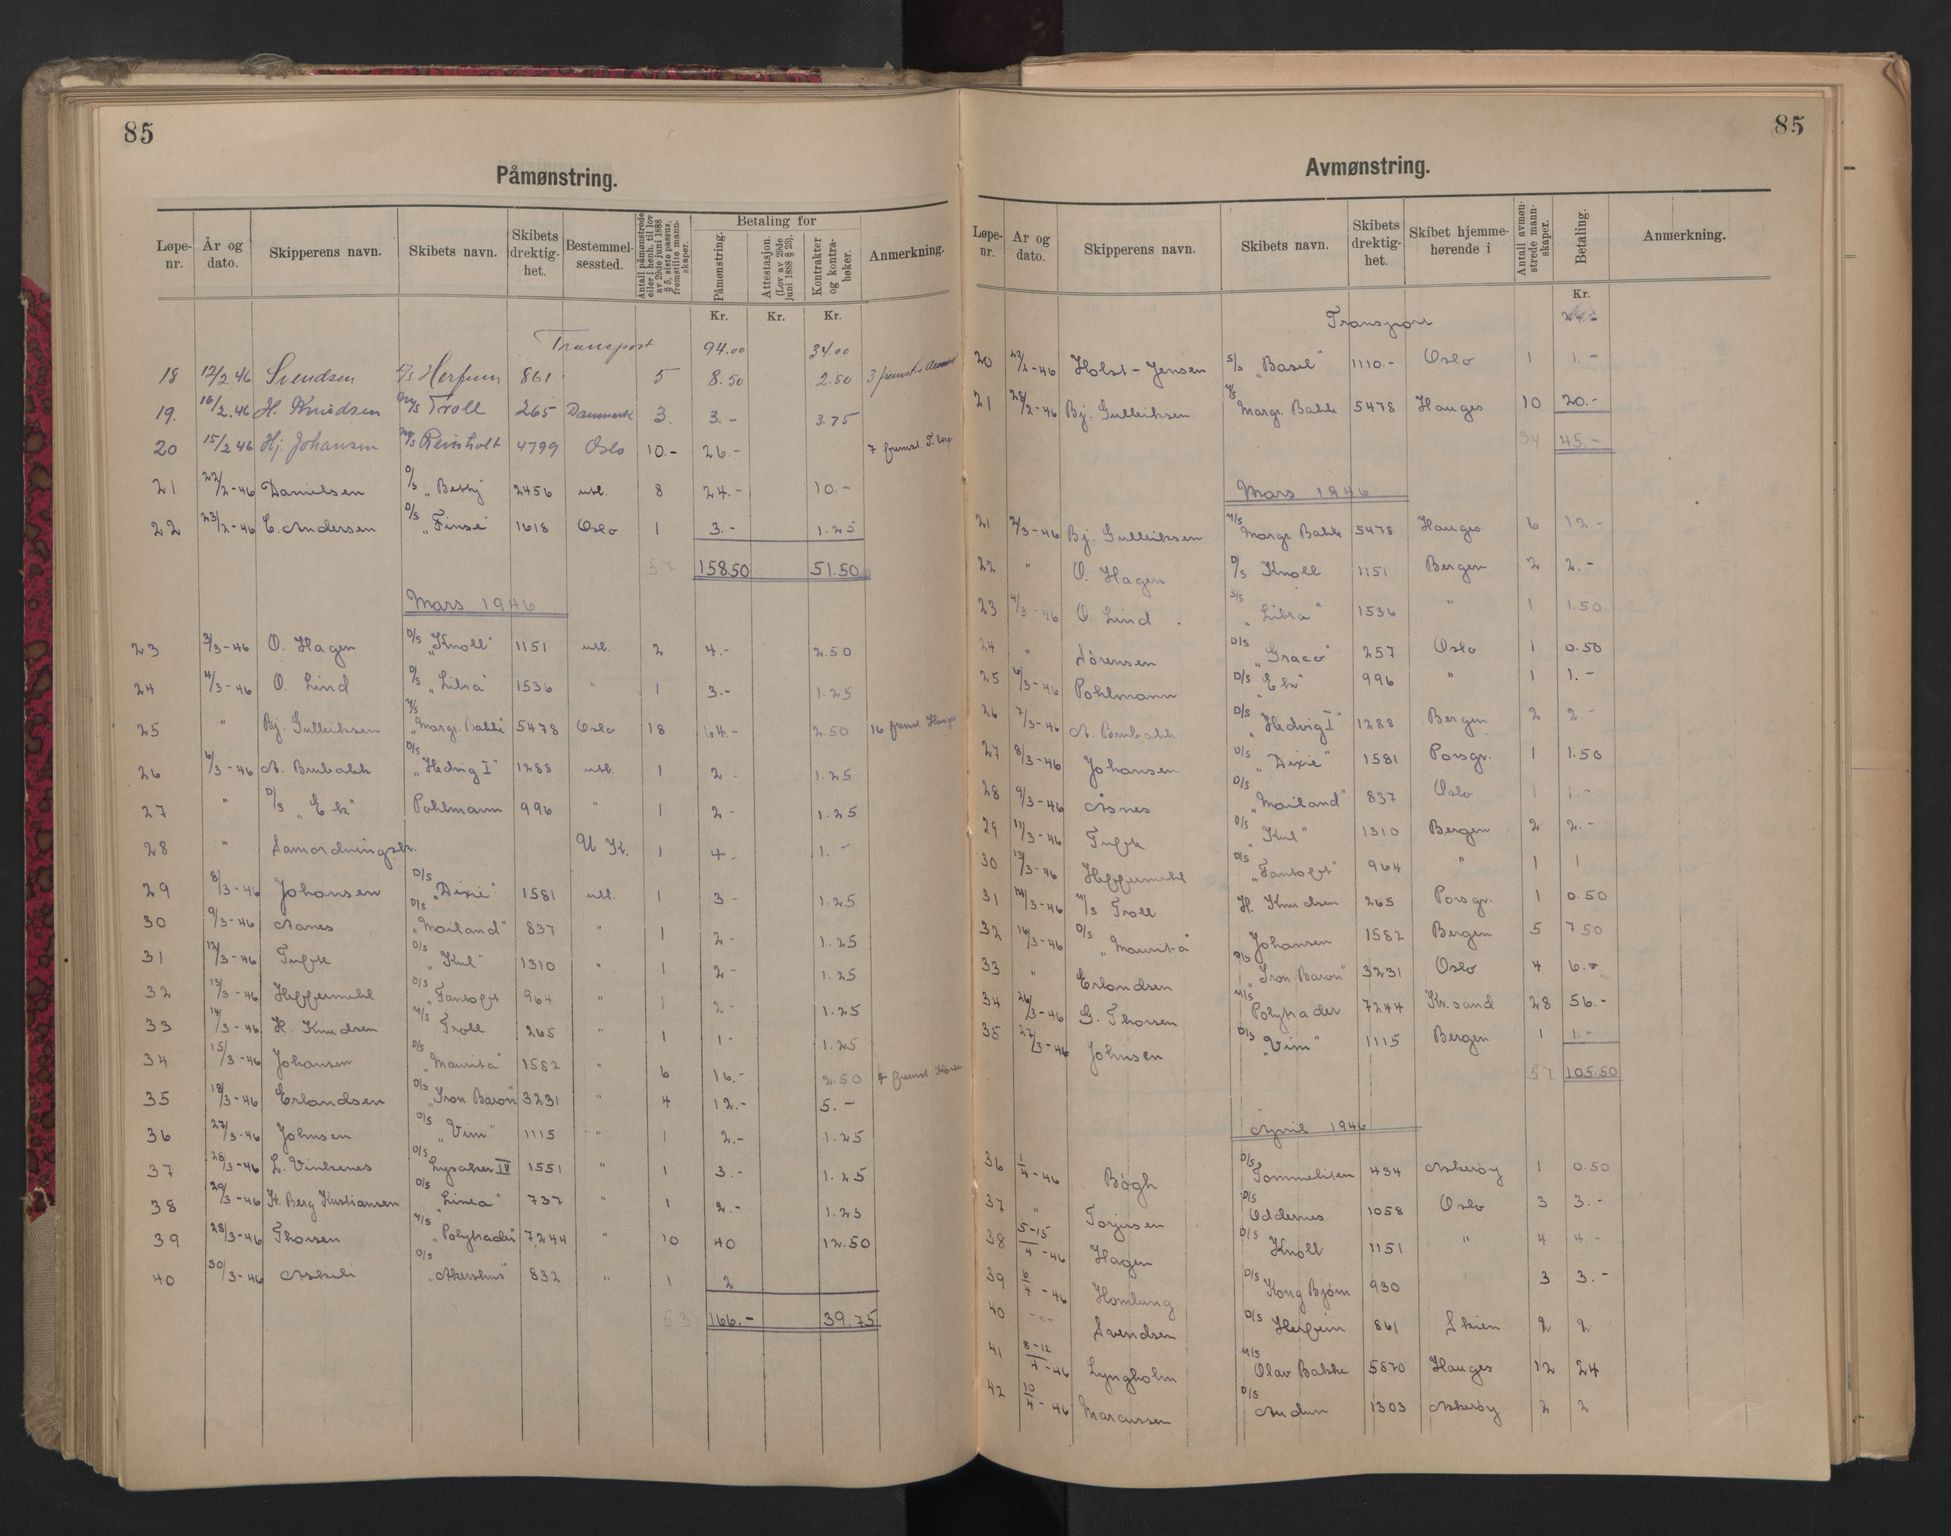 85
Påmønstring.
Løpe-nr. | År og dato. | Skipperens navn. | Skibets navn. | Skibets drektig-het. | Bestemmel-sessted. | Antall påmønstrede eller i henh. til lov av 29de juni 1888 § 5, siste passus, fremstilte mann-skaper. | Betaling for | Påmønstring. | Attestasjon. (Lov av 29de juni 1888 § 23). | Kontrakter og kontra-bøker. | Anmerkning.
Kr. Kr. Kr.
Transport 94.00 34.00
18 12/2.46 Svendsen D/S Herfinn 861 5 8.50 2.50 3 fremst.
19. 16/2.46 H. Knudsen M/S Troll 265 Danmark 3. 3.- 3.75
20 15/2 46 Hj. Johansen M/S Reinholt 4799 Oslo 10.- 26.- 7 fremst. T.berg
21 22/2-46 Danielsen D/S "Betty" 2456 utl. 8 24.- 10.-
22 23/2-46 E. Andersen D/S "Finse" 1618 Oslo 1 3.- 1.25
57 158.50 51.50
Mars 1946
23 3/3-46 O. Hagen D/S "Knoll" 1151 utl. 2 4.- 2.50
24 4/3-46 O. Lind D/S "Libra" 1536 " 1 3.- 1.25
25 " Bj. Gulleiksen M/S "Margr. Bakke" 5478 Oslo 18 64.- 2.50 16 fremst. Hauges
26 6/3-46 A. Brubakk D/S "Hedvig I" 1288 utl. 1 2- 1.25
27 " D/S "Ek" Pohlmann 996 " 1 2- 1.25
28 " Samordningsk. U K. 1 4- 1.-
29 8/3-46 Johansen D/S "Dixie" 1581 utl. 1 3- 1.25
30 9/3-46 Aanes D/S "Mailand" 837 " 1 2- 1.25
31 12/3-46 Tufte D/S "Kul" 1310 " 1 2- 1.25
32 13/3-46 Heffermehl D/S "Fantoft" 964 " 1 2- 1.25
33 14/3-46 H. Knudsen M/S Troll 265 " 1 1- 1.25
34 15/3-46 Johansen D/S "Maurita" 1582 " 6 16.- 2.50 4 fremst. Horten
35 18/3-46 Erlandsen D/S "Iron Baron" 3231 " 4 12.- 5.-
36 27/3-46 Johnsen D/S "Vim" 1115 " 1 2.- 1.25
37 28/3-46 L. Vinkenes D/S Lysaker IV 1551 " 1 3.- 1.25
38 29/3-46 Kr. Berg Kristiansen D/S "Linea" 737 " 1 2.- 1.25
39 28/3-46 Thorsen M/S "Polytrader" 7244 " 10 40 12.50
40 30/3-46 D/S "Akershus" 832 " 1 2
53 166.- 39.75
85
Avmønstring.
Løpe-nr. | År og dato. | Skipperens navn. | Skibets navn. | Skibets drektig-het. | Skibet hjemme-hørende i | Antall avmøn-strede mann-skaper. | Betaling. | Anmerkning.
Kr.
Transport 24-
20 22/2-46 Holst-Jensen S/S "Basel" 1110.- Oslo 1 1.-
21 28/2-46 Bj. Gulleiksen M/S Margr. Bakke 5478 Hauges 10 20.-
34 45.-
Mars 1946
21 2/3-46 Bj. Gulleiksen M/S Margr. Bakke 5478 Hauges 6 12.-
22 " O. Hagen D/S Knoll 1151 Bergen 2 2.-
23 4/3-46 O. Lind. S/S "Libra" 1536 " 1 1.50
24 " Sørensen D/S "Graco" 257 Oslo 1 0.50
25 6/3-46 Pohlmann D/S "Ek" 996 " 1 1.-
26 7/3-46 A. Brubakk D/S "Hedvig I" 1288 Bergen 2 2.-
27 8/3-46 Johansen D/S "Dixie" 1581 Porsgr. 1 1.50
28 9/3-46 Åsnes D/S "Mailand" 837 Oslo 1 1.-
29 11/3-46 Tufte D/S "Kul" 1310 Bergen 2 2.-
30 13/3-46 Heffermehl D/S "Fantoft" 964 " 1 1
31 14/3-46 M/S Troll H. Knudsen 265 Porsgr. 1 0.50
32 16/3-46 D/S "Maurita" Johansen 1582 Bergen 5 7.50
33 " Erlandsen D/S "Iron Baron" 3231 Oslo 4 6.-
34 26/3-46 G. Thorsen M/S Polytrader 7244 Kr.sand 28 56.-
35 27/3-46 Johnsen D/S "Vim" 1115 Bergen 1 1.-
57 105.50
April 1946
36 1/4-46 Bøgh D/S Tommeliten 434 Askerøy 1 0.50
37 " Torjusen D/S Oddernes 1058 Oslo 3 3.-
38 5-15/4-46 Hagen D/S Knoll 1151 " 4 4.-
39 6/4-46 Homlung D/S Kong Bjørn 930 3 3.-
40 -"- Svendsen D/S Herfinn 861 Skien 2 2
41 8-12/4-46 Lyngholm M/S Olav Bakke 5870 Hauges 12 24
42 10/4-46 Marcussen D/S Audun 1303 Askerøy 2 2